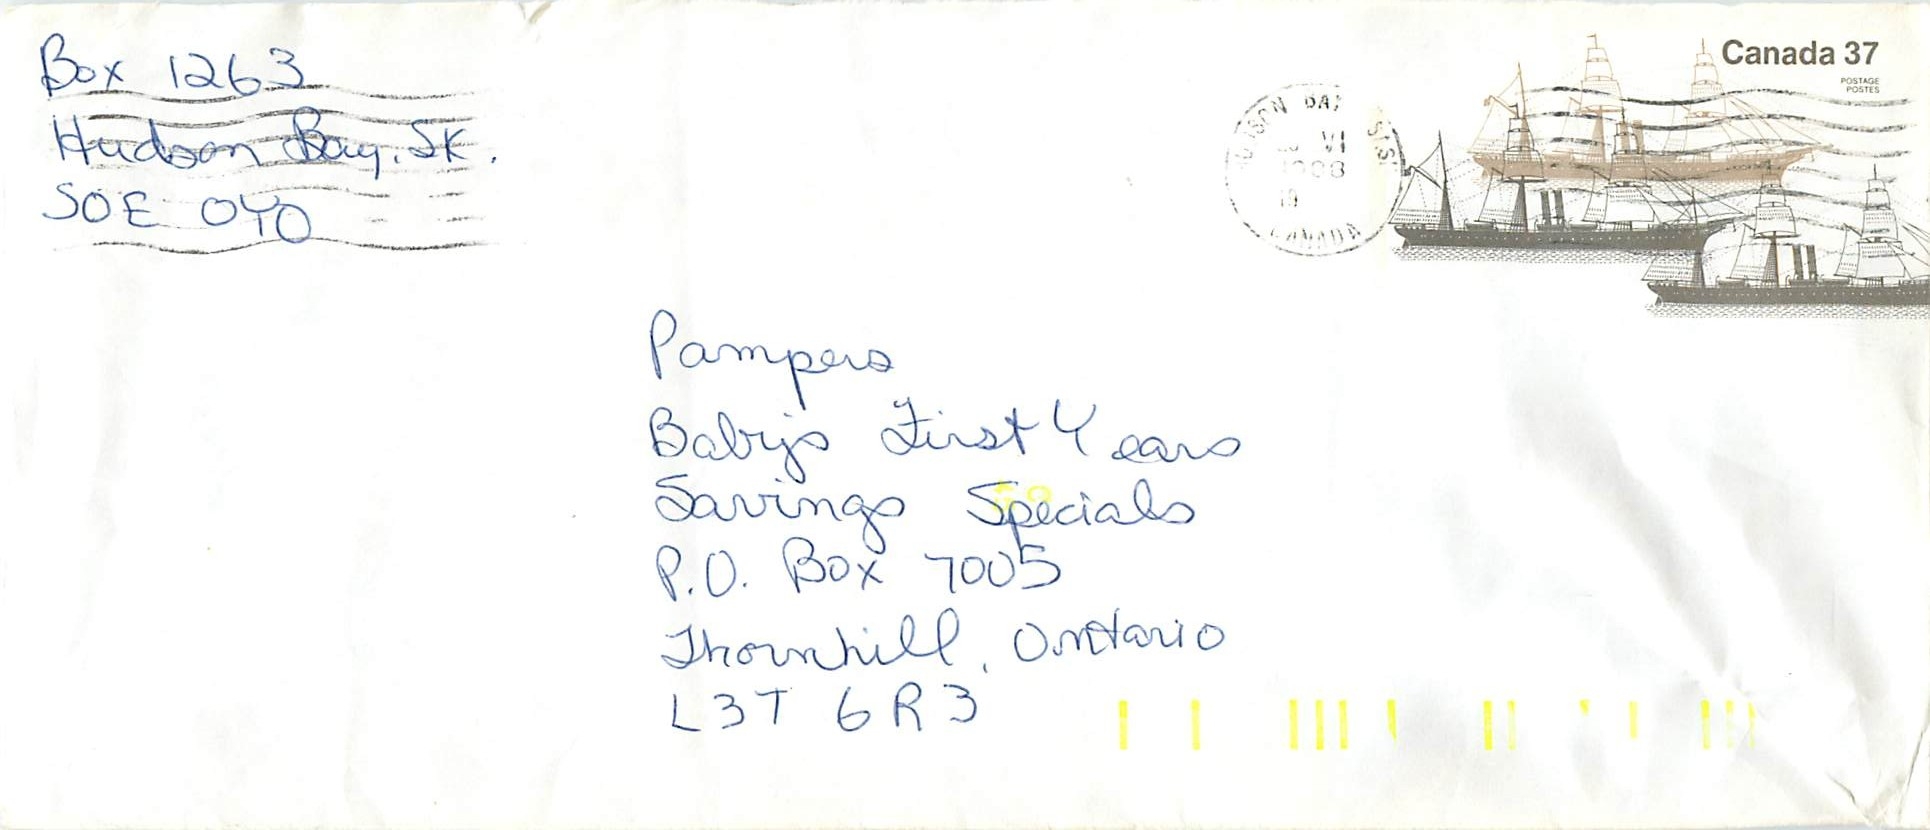 Box 1263
Hudson Bay, SK.
S0E 0Y0
Canada 37
POSTAGE
POSTES
VI
1988
CANADA
Pampers
Baby's First Years
Savings Specials
P.O. Box 7005
Thornhill, Ontario
L3T 6R3